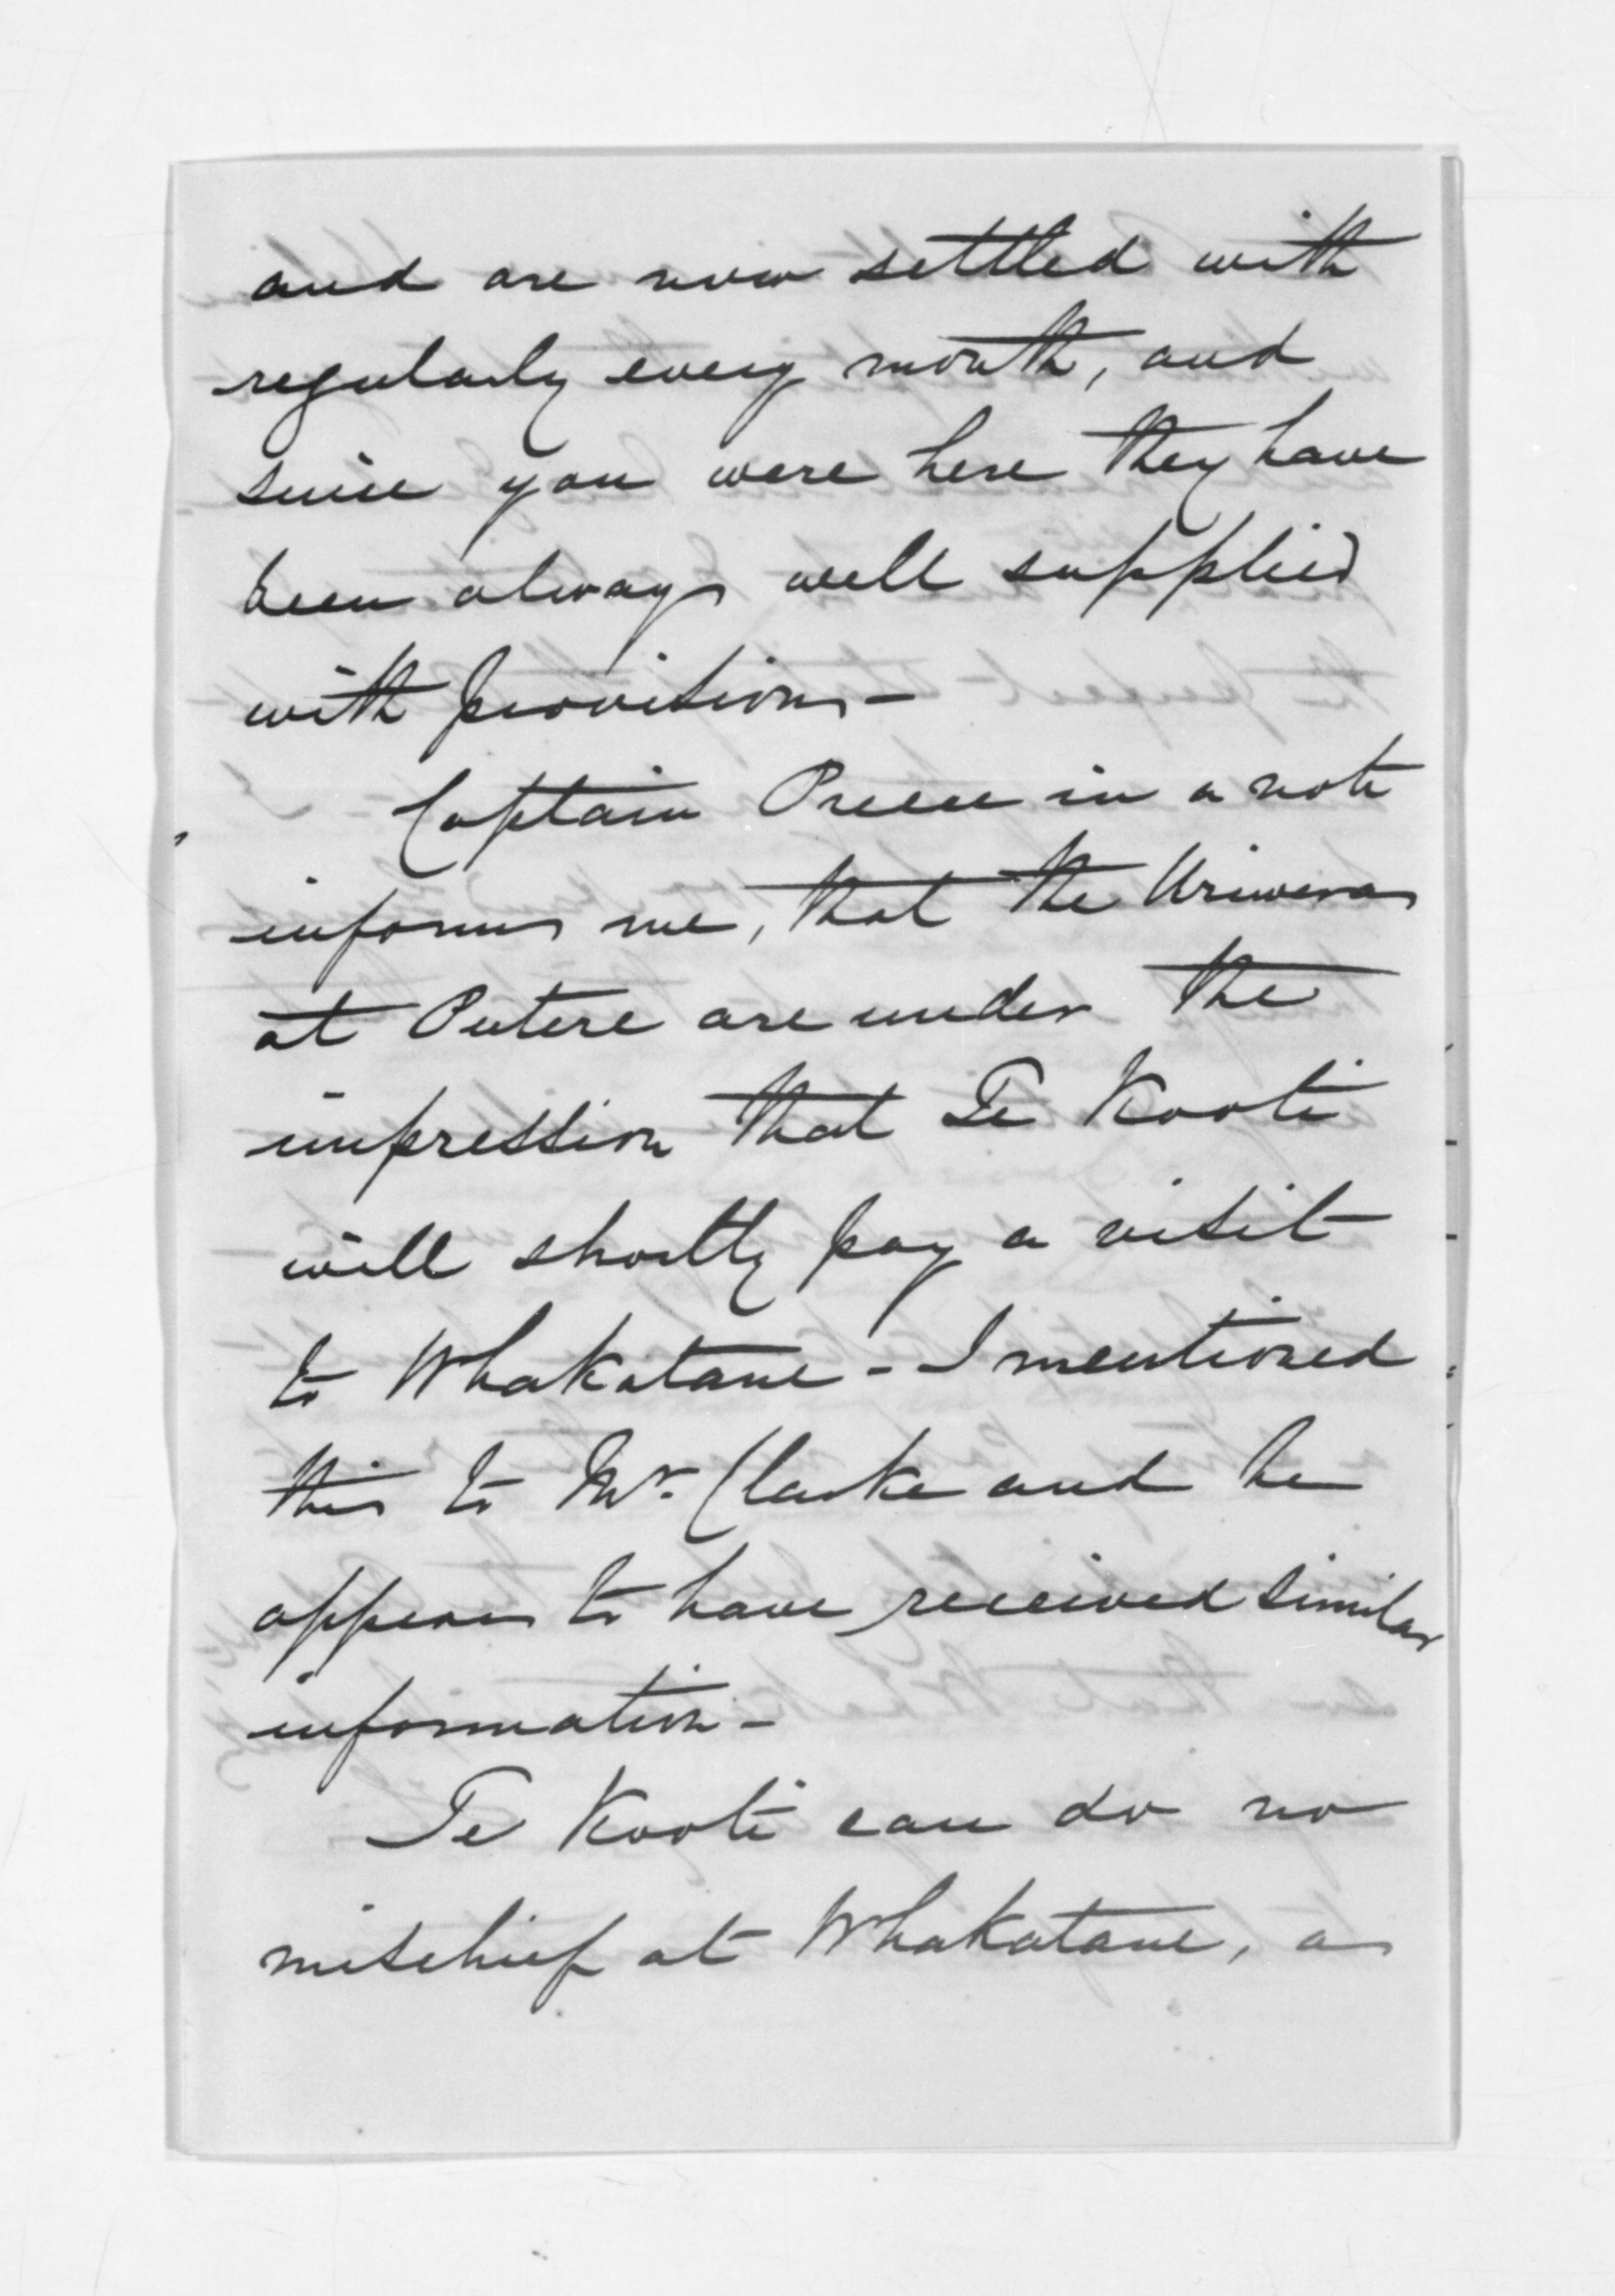 and are now settled with
regularly every month, and
since you were here they have
been always well supplied
with provisions -
Captain Preece in a note
informs me, that the Uriweras
at Putere are under the
impression that Te Kooti
will shortly pay a visit
to Whakatane - I mentioned
this to Mr. Clarke and he
appears to have received similar
information -
Te Kooti can do no
mischief at Whakatane, as